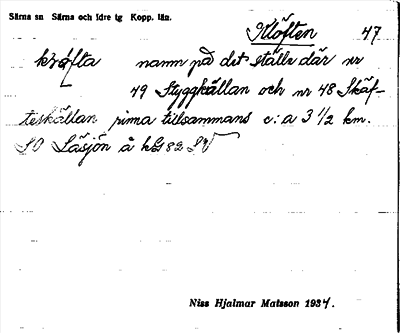 Särna sn Särna och Idre tg Kopp. län.
Klöften 47
kräfta namn på det ställe där nr
49 Styggkällan och nr 48 Skäf-
teskällan rinna tillsammans c:a 3 1/2 km.
SO Läsjön å kbl 82 SV
Niss Hjalmar Matsson 1934.